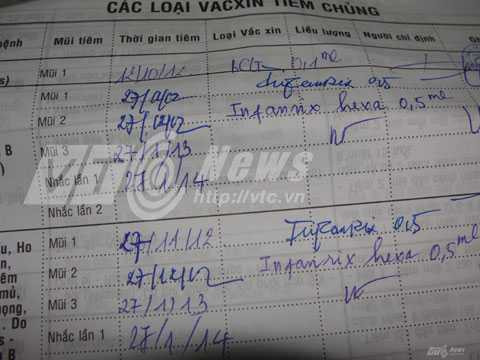 CÁC LOẠI VACXIN TIÊM CHỦNG
bệnh Mũi tiêm Thời gian tiêm Loại Vắc xin Liều lượng Người chỉ định
Mũi 1 12/10/12 BCG 0,1ml
Mũi 1 27/11/12 Infanrix 0,5
Mũi 2 27/12/12 Infanrix hexa 0,5ml
B Mũi 3 27/1/13
Nhắc lần 1 27/1/14
Nhắc lần 2
VTC News
http://vtc.vn
Ho Mũi 1 27/11/12 Infanrix 0,5
Mũi 2 27/12/12 Infanrix hexa 0,5ml
Mũi 3 27/1/13
Do Nhắc lần 1 27/1/14
B